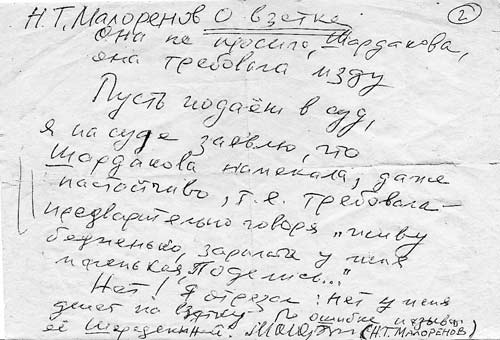 Н.Т. Малоренов О взятке (2)
Она не просила, Шардакова,
она требовала мзду
Пусть подаёт в суд,
я на суде заявлю, что
Шардакова намекала, даже
настойчиво, т.е. требовала –
предварительно говоря "живу
бедненько, зарплата у меня
маленькая, поделись..."
Нет! Я отрезал: нет у меня
денег на взятку. По ошибке
её (Н.Т. МАЛОРЕНОВ)